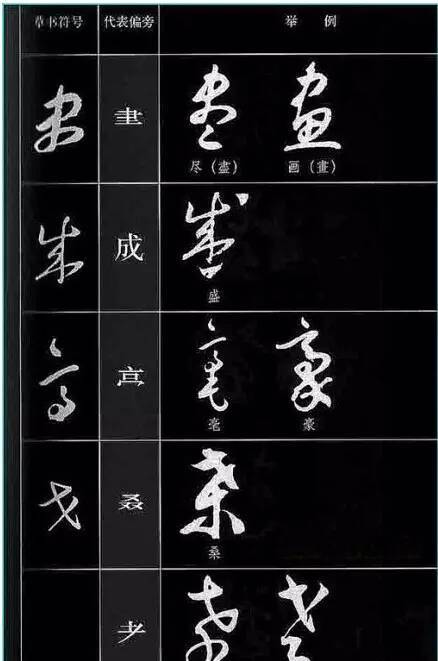 草书符号 代表偏旁 举 例
尽（盡） 画（畫）
成
盛
亳 豪
叒
桑
耂